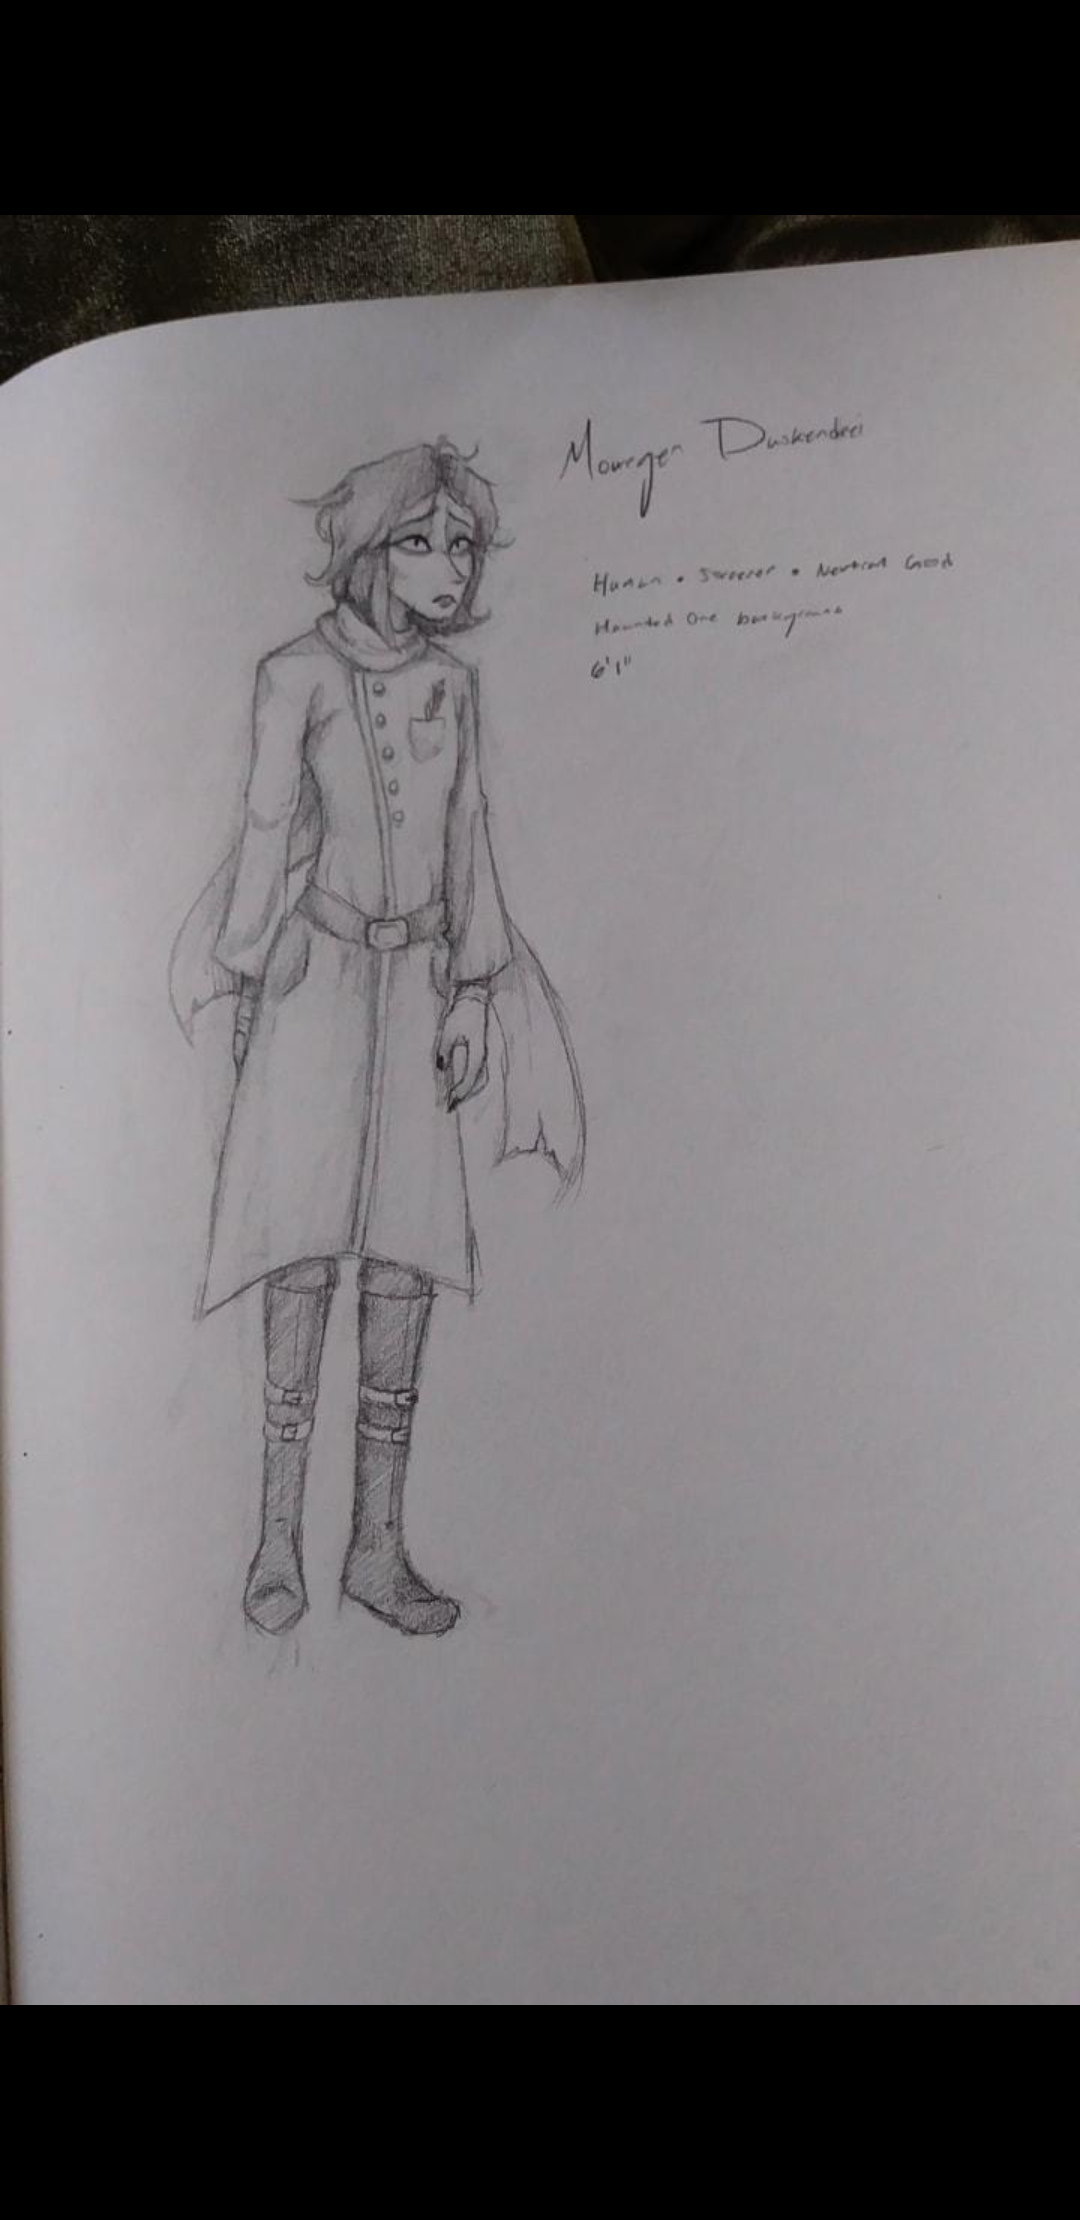 Mowrgen Duskendrei
Human • Sorcerer • Neutral Good
Haunted One background
6'1"